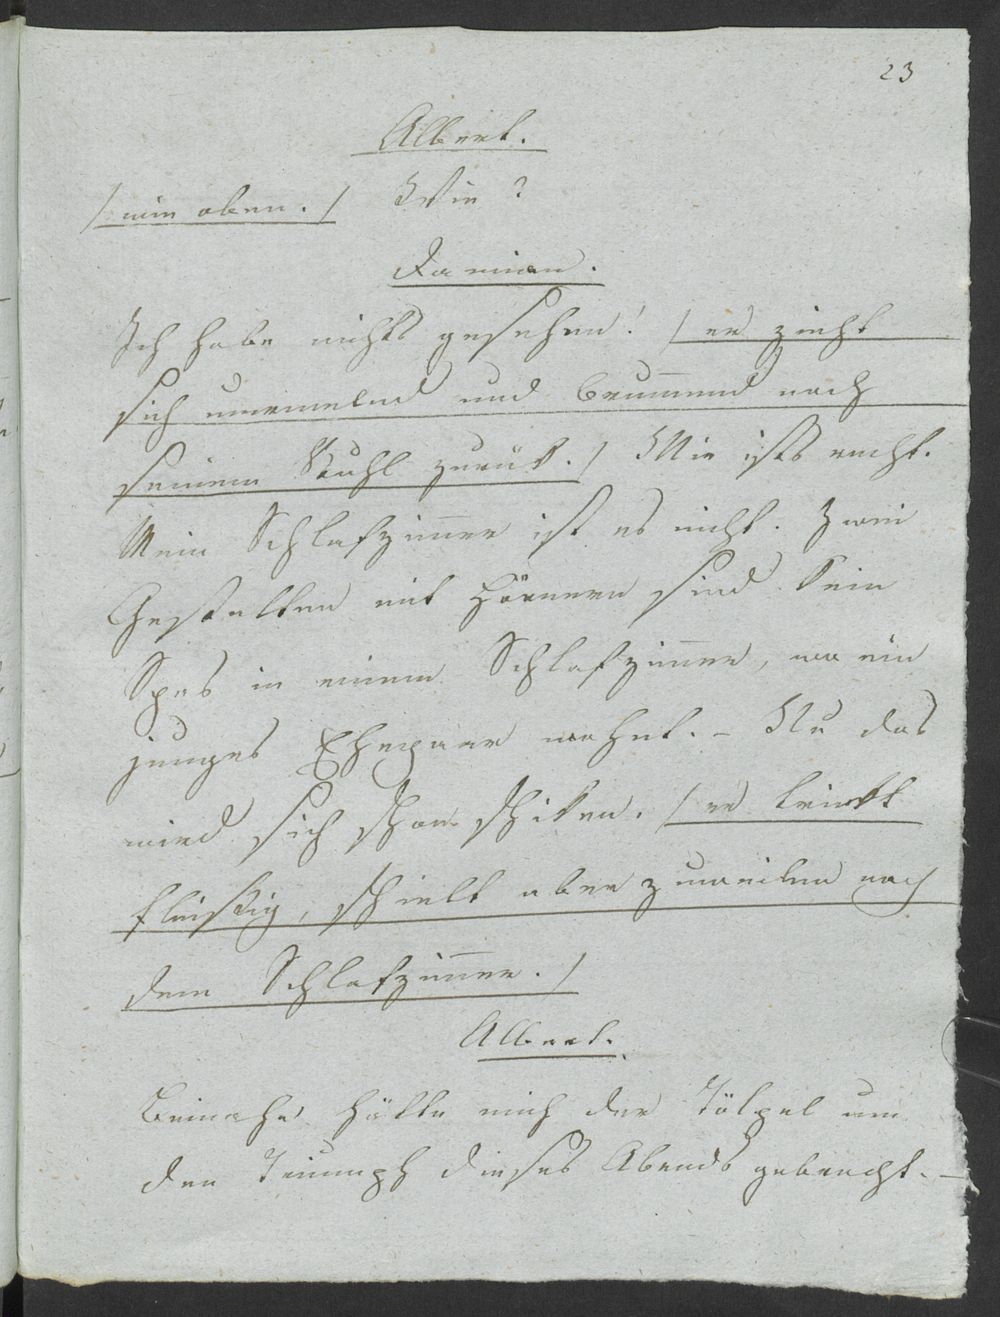 23
Albert.
/ wie oben. / Wie?
Damian.
Ich habe nichts gesehen! / er zieht
sich murmelnd und brum̅end nach
seinem Stuhl zurük. / Mir ists recht.
Mein Schlafzim̅er ist es nicht. Zwei
Gestalten mit Hörnern sind kein
Spas in einem Schlafzim̅er, wo ein
junges Ehepaar wohnt. – Nu das
wird sich schon schiken. / er trinkt
fleißig, schielt aber zuweilen nach
dem Schlafzim̅er. /
Albert.
Beinahe hätte mich der Tölpel um
den Triumph dieses Abends gebracht. –